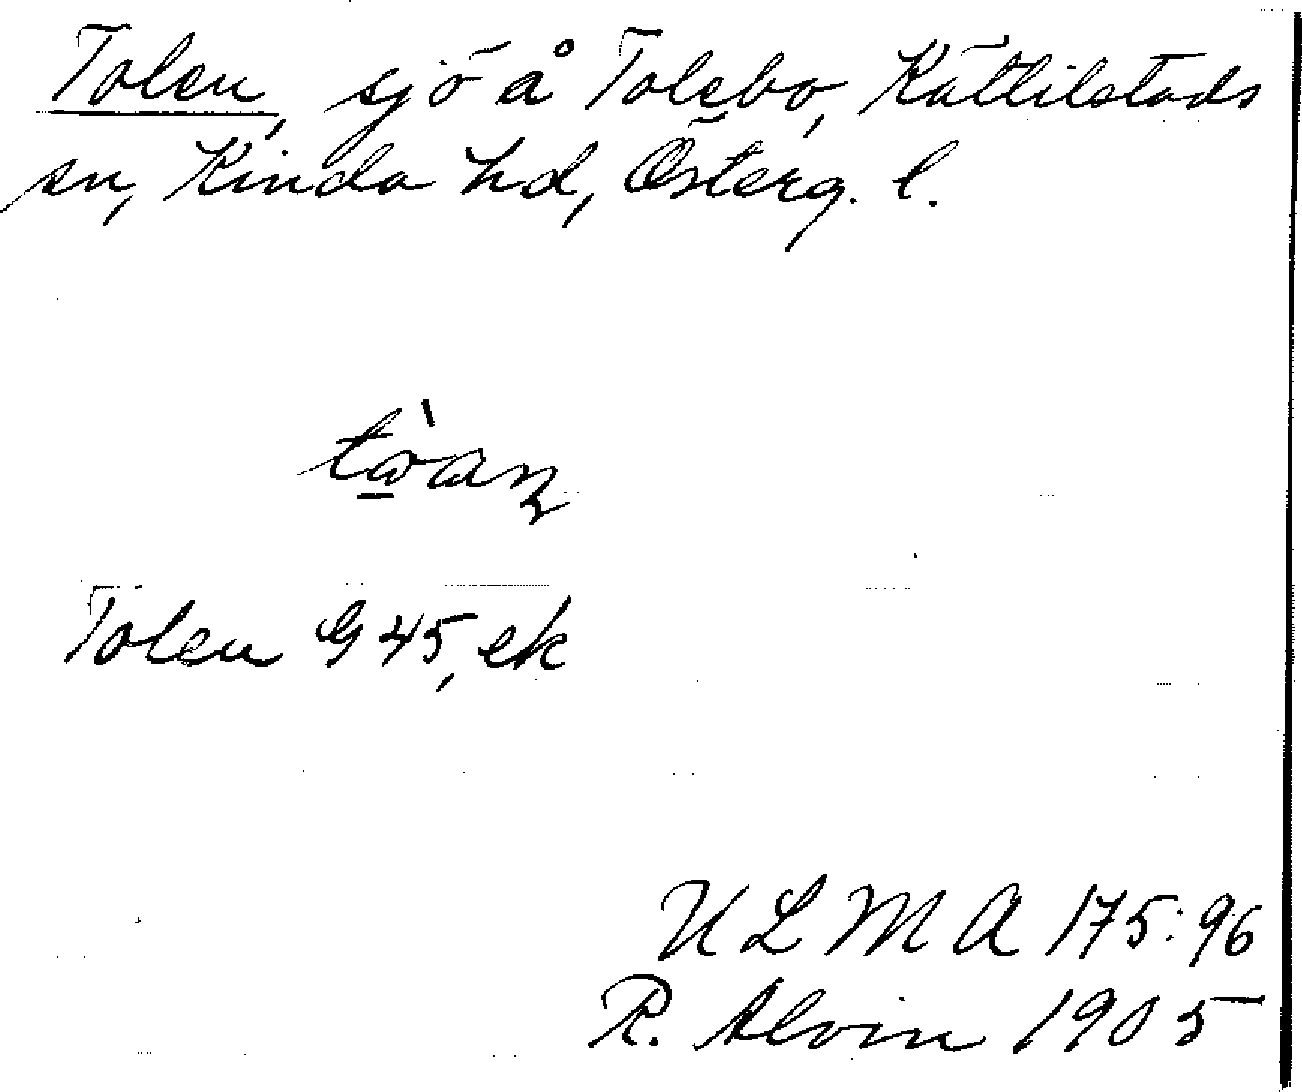 Tolen, sjö å Tolebo, Kättilstads
sn, Kinda hd, Österg. l.
Tolen G 45, ek
ULMA 175:96
R. Alvin 1905